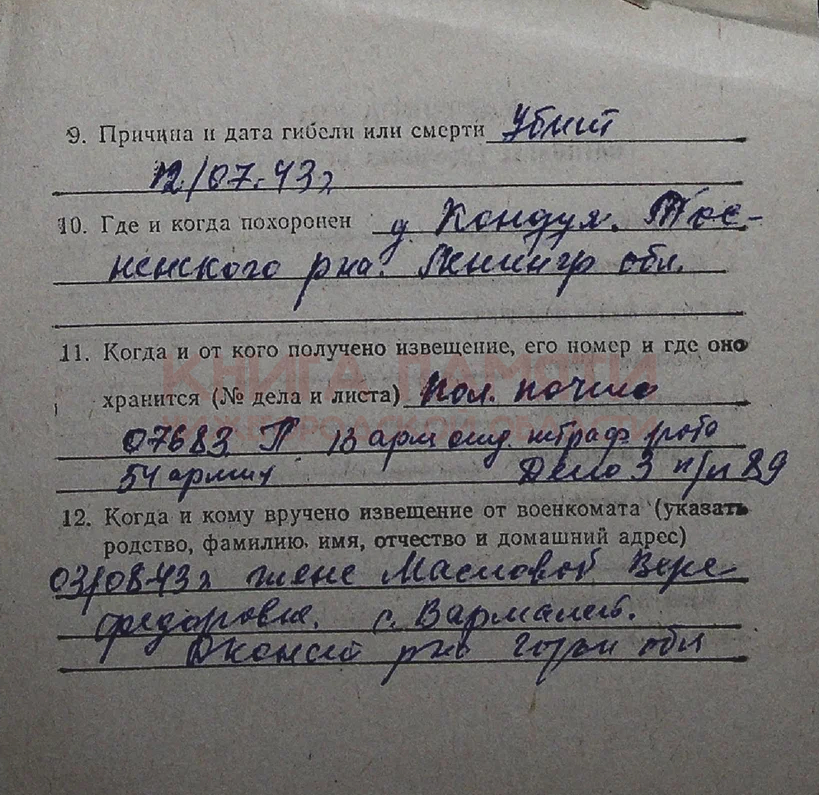 9. Причина и дата гибели или смерти Убит
12/07.43г
10. Где и когда похоронен д. Кондуя. Тос-
ненского р-на. Ленингр обл.
11. Когда и от кого получено извещение, его номер и где оно
хранится (№ дела и листа) Пол. почта
КНИГА ПАМЯТИ
НИЖЕГОРОДСКОЙ ОБЛАСТИ
07683 П 13 арм отд. штраф рота
54 армии Дело 3 п/л 89
12. Когда и кому вручено извещение от военкомата (указать
родство, фамилию, имя, отчество и домашний адрес)
03/08-43г жене Масловой Вере
федоровне. с. Вармалей.
р-на обл